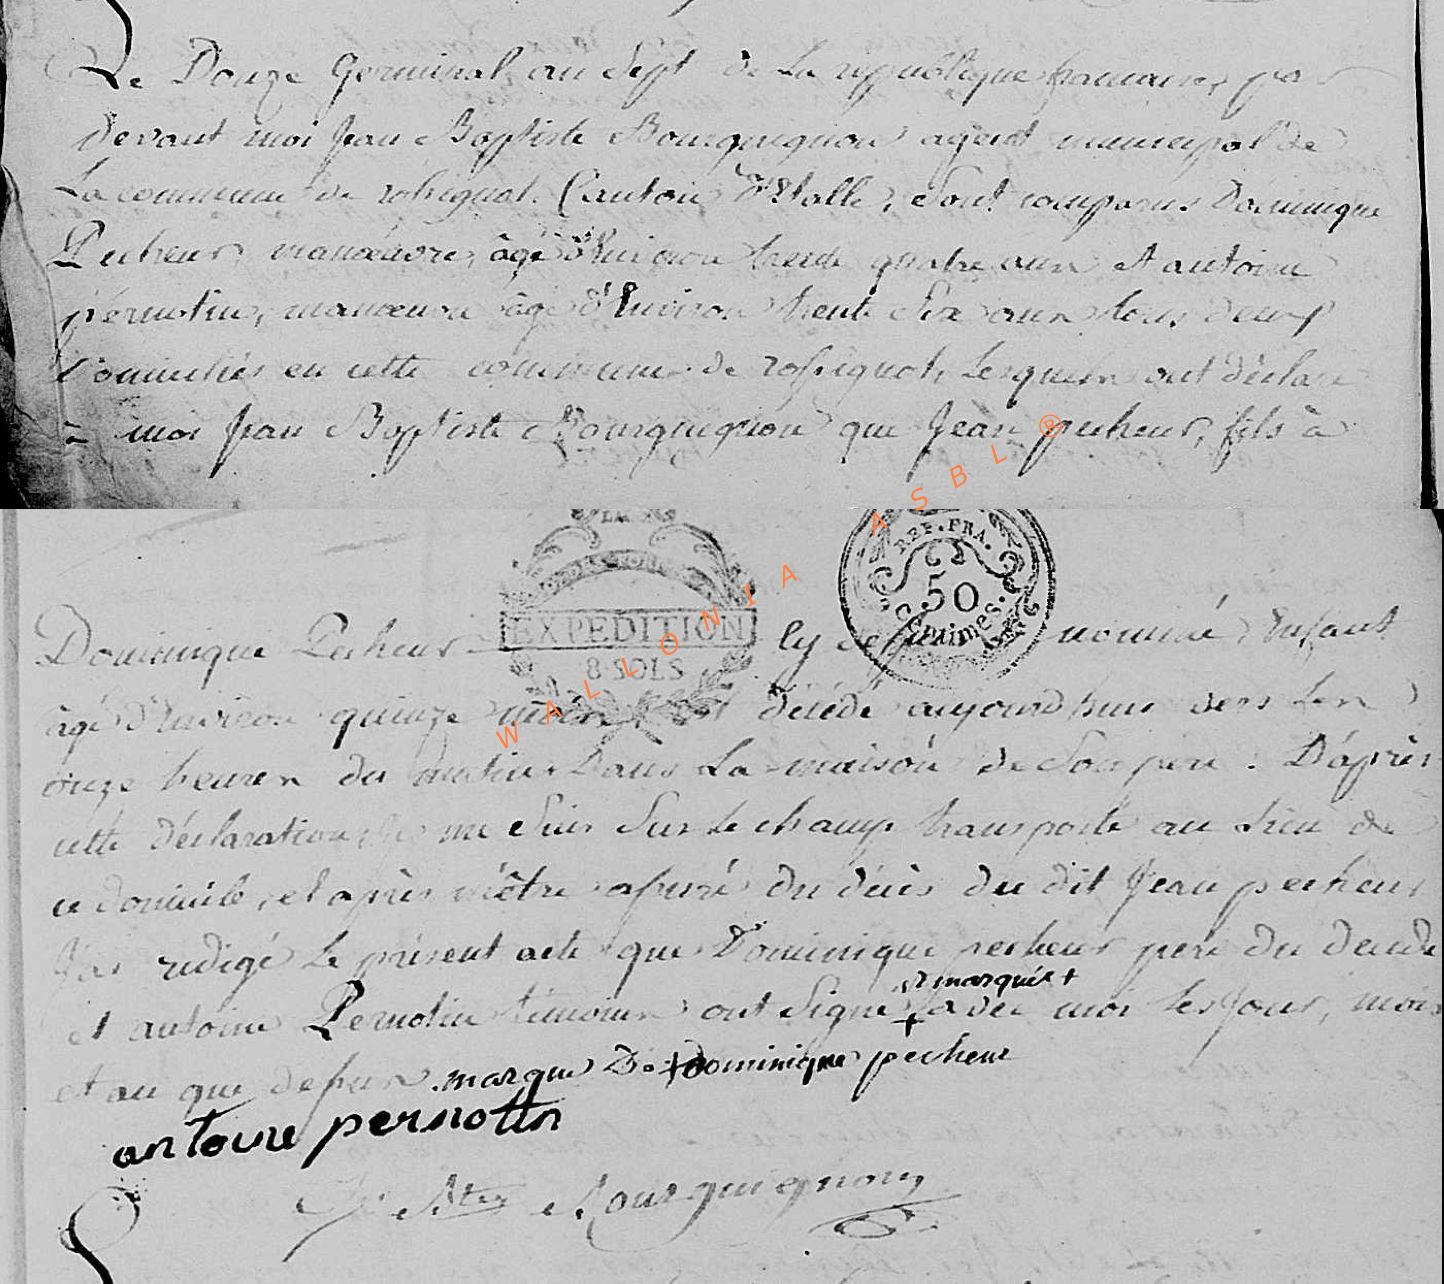 Le Douze Germinal an Sept de La republique francaise, par
devant moi Jean Baptiste Bourguignon agent municipal de
La commune de rossignol. Canton d'Etalle, Sont comparus Dominique
Pecheur, manoeuvre, âgé d'Environ trente quatre ans et antoine
pernotin, manoeuvre âgé d'Environ trente Six ans tous deux
Domiciliés en cette commune de rossignol, Lesquels ont déclaré
à moi Jean Baptiste Bourguignon que Jean pecheur, fils à
REP. FRA.
50
centimes.
EXPEDITION
8 SOLS
WALLONIA ASBL ®
Dominique Pecheur cy nommé, Enfant
âgé d'Environ quinze mois, est décédé aujourdhuis vers Les
onze heures du matin Dans La maison de Son pere. D'après
cette déclaration, je me Suis Sur le champ transporté au Lieu de
ce domicile, et après m'être assuré du décès du dit Jean pecheur
J'ai redigé Le présent acte que Dominique pecheur pere du décédé
et marqués +
et antoine Pernotin témoins ont Signé + avec moi les Jour, mois
et an que dessus. marque De + dominique pecheur
antoine pernotin
Bourguignon